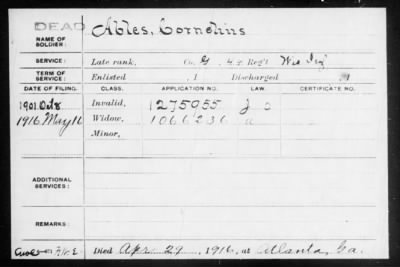 DEAD
NAME OF SOLDIER: Ables, Cornelius
SERVICE: Late rank, Co. G, 49 Reg't Wis Inf
TERM OF SERVICE: Enlisted , 1 Discharged , 1
DATE OF FILING. CLASS. APPLICATION NO. LAW. CERTIFICATE NO.
1901 Oct 8 Invalid, 1275055
1916 May 16 Widow, 1066236
Minor,
ADDITIONAL SERVICES:
REMARKS:
Died Apr 29, 1916, at Atlanta, Ga.